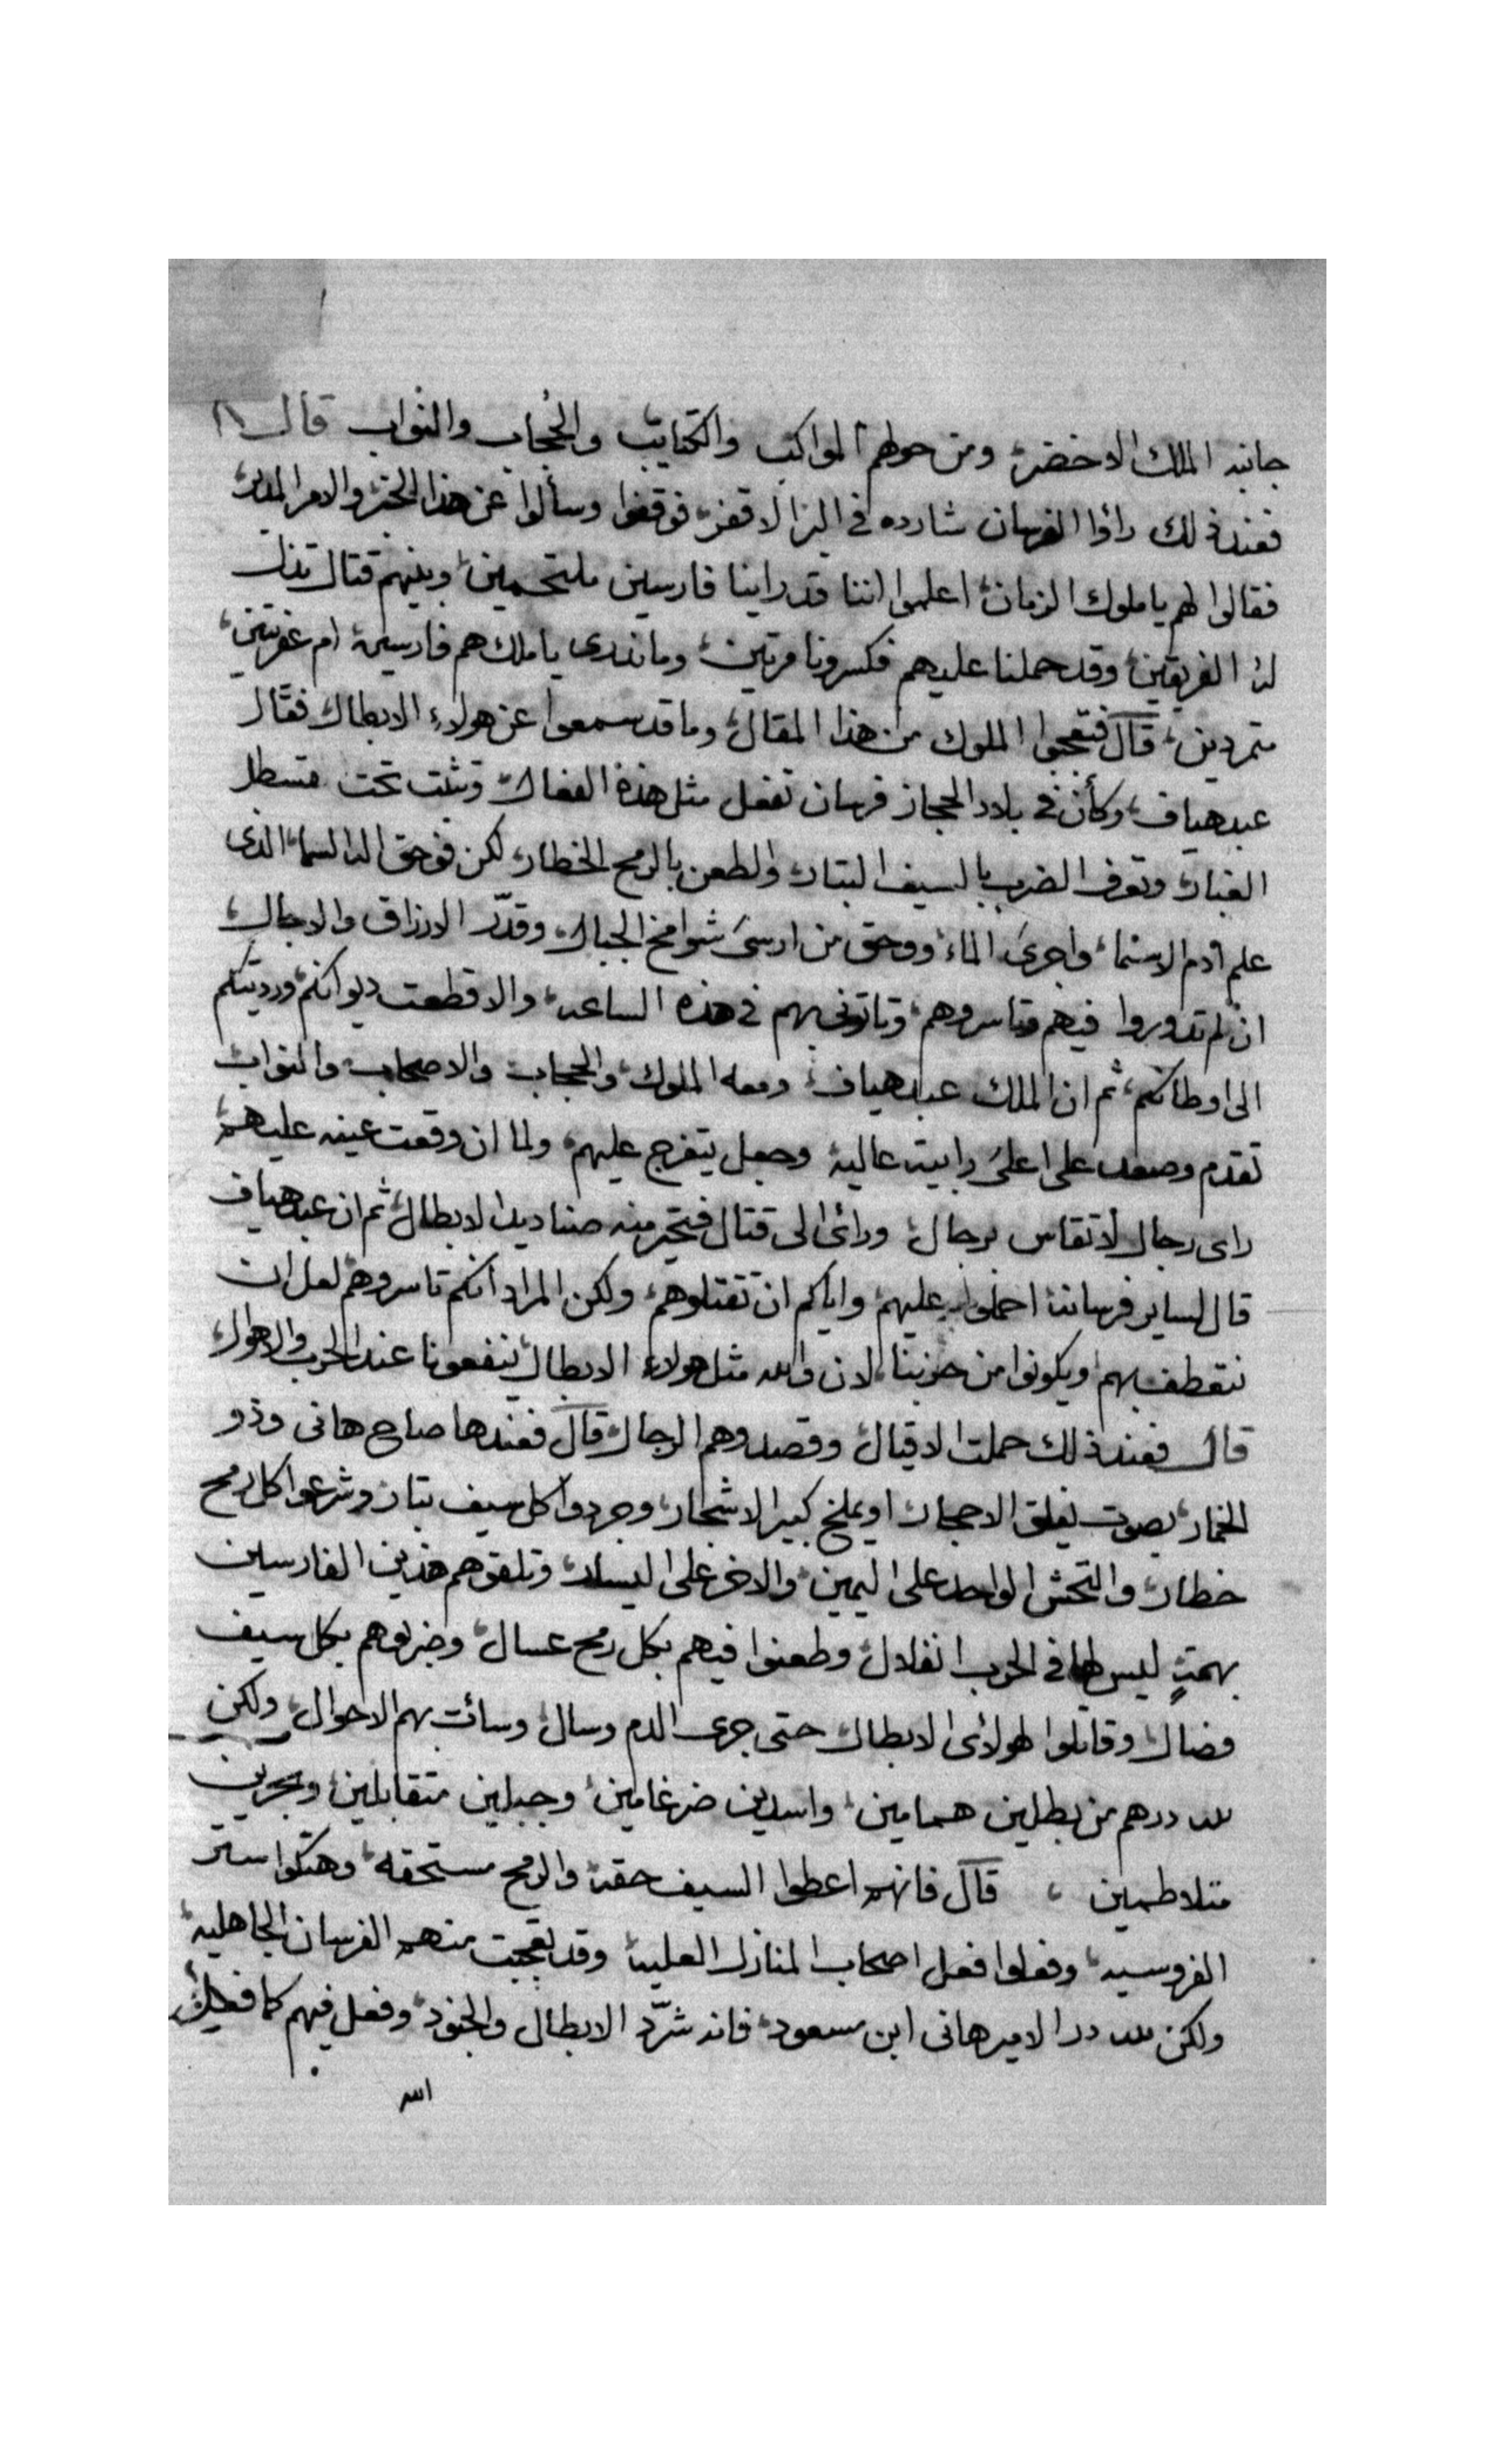 جانبه الملك الاخضر، ومن حولهم المواكب والكتايب والحُجاب والنواب قال
فعند ذلك راؤا الفرسان شارده في البر الاقفر، فوقفوا وسألوا عن هذا الخبر، والامر المدبر،
فقالوا لهم يا ملوك الزمان، اعلموا اننا قد راينا فارسين ملتحمين، وبينهم قتال تذل
له الفريقين، وقد حملنا عليهم فكسرونا مرتين، وما ندرى يا ملك هم فارسين، ام عفريتين،
متمردين، قال فتعجبوا الملوك من هذا المقال، وما قد سمعوا عن هولاء الابطال، فقال
عبد هياف، وكأن في بلاد الحجاز فرسان تفعل مثل هذة الفعال، وتثبت تحت قسطل
الغبار، وتعرف الضرب بالسيف البتار، والطعن بالرمح الخطار، لكن فوحق اله السما، الذى
علم ادم الاسما، واجرى الماء، ووحق من ارسى شوامخ الجبال، وقدّر الارزاق والاجال،
ان لم تدوروا فيهم وتاسروهم، وتاتونى بهم في هذه الساعه، والا قطعت ديوانكم، ورديتكم
الى اوطانكم، ثم ان الملك عبد هياف، ومعه الملوك، والحجاب والاصحاب، والنواب
تقدم وصعد على اعلى رابيت عالية، وجعل يتفرج عليهم، ولما ان وقعت عينه عليهم،
راى رجال لا تقاس برجال، ورائ الى قتال فيتحير منه صناديد الابطال، ثم ان عبد هياف
قال لساير فرسانه احملوا عليهم، واياكم ان تقتلوهم، ولكن المراد انكم تاسروهم لعل ان
نتعطف بهم ويكونوا من حزبنا، لان والله مثل هولاء الابطال ينفعونا عند الحرب والاهوال،
قال فعند ذلك حملت الاقيال، وقصدوهم الرجال، قال فعندها صاح هانى وذو
الخمار، بصوت يفلق الاحجار، او يملخ كبير الاشجار، وجردوا كل سيف بتار، وشرعوا كل رمح
خطار، والتحش الواحد على اليمين، والاخر على اليسار، وتلقوهم هذين الفارسين
بهمتٍ ليس لها في الحرب انفلال، وطعنوا فيهم بكل رمح عسال، وضربوهم بكل سيف
فصال، وقاتلوا لهولائ الابطال، حتى جرى الدم وسال، وسائت بهم الاحوال، ولكن
لله درهم من بطلين همامين، واسدين ضرغامين، وجبلين متقابلين، وبحرين
متلاطمين، قال فانهم اعطوا السيف حقه، والرمح مستحقه، وهتكوا ستر
الفروسيه، وفعلوا فعل اصحاب المنازل العليه، وقد تعجبت منهم الفرسان الجاهليه،
ولكن لله در الامير هانى ابن مسعود، فانه شرّد الابطال والجنود، وفعل فيهم كما فعل
الله